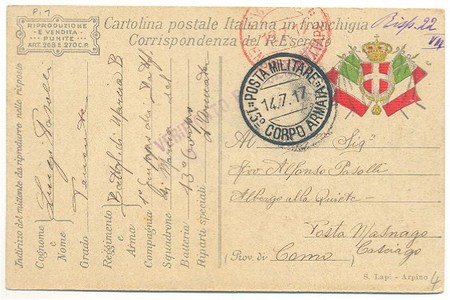 P. 1
RIPRODUZIONE
E VENDITA
PUNITE
ART. 268 E 270 C. P.
Cartolina postale Italiana in franchigia
Corrispondenza del R. Esercito
Risp. 22
POSTA MILITARE
14.7.17
13º CORPO ARMATA
VERIFICATO
Indirizzo del mittente da riprodurre nelle risposte
Cognome e Nome Luigi Pasolli
Grado Tenente
Reggimento e Arma Battgl. di Marcia B
Compagnia
Squadrone
Batteria 13º Corpo
Riparti speciali d'Armata
Al Sigr
Avv Alfonso Pasolli
Albergo alla Quiete
Posta Masnago
Casciago
(Prov. di Como)
S. Lapi - Arpino
4